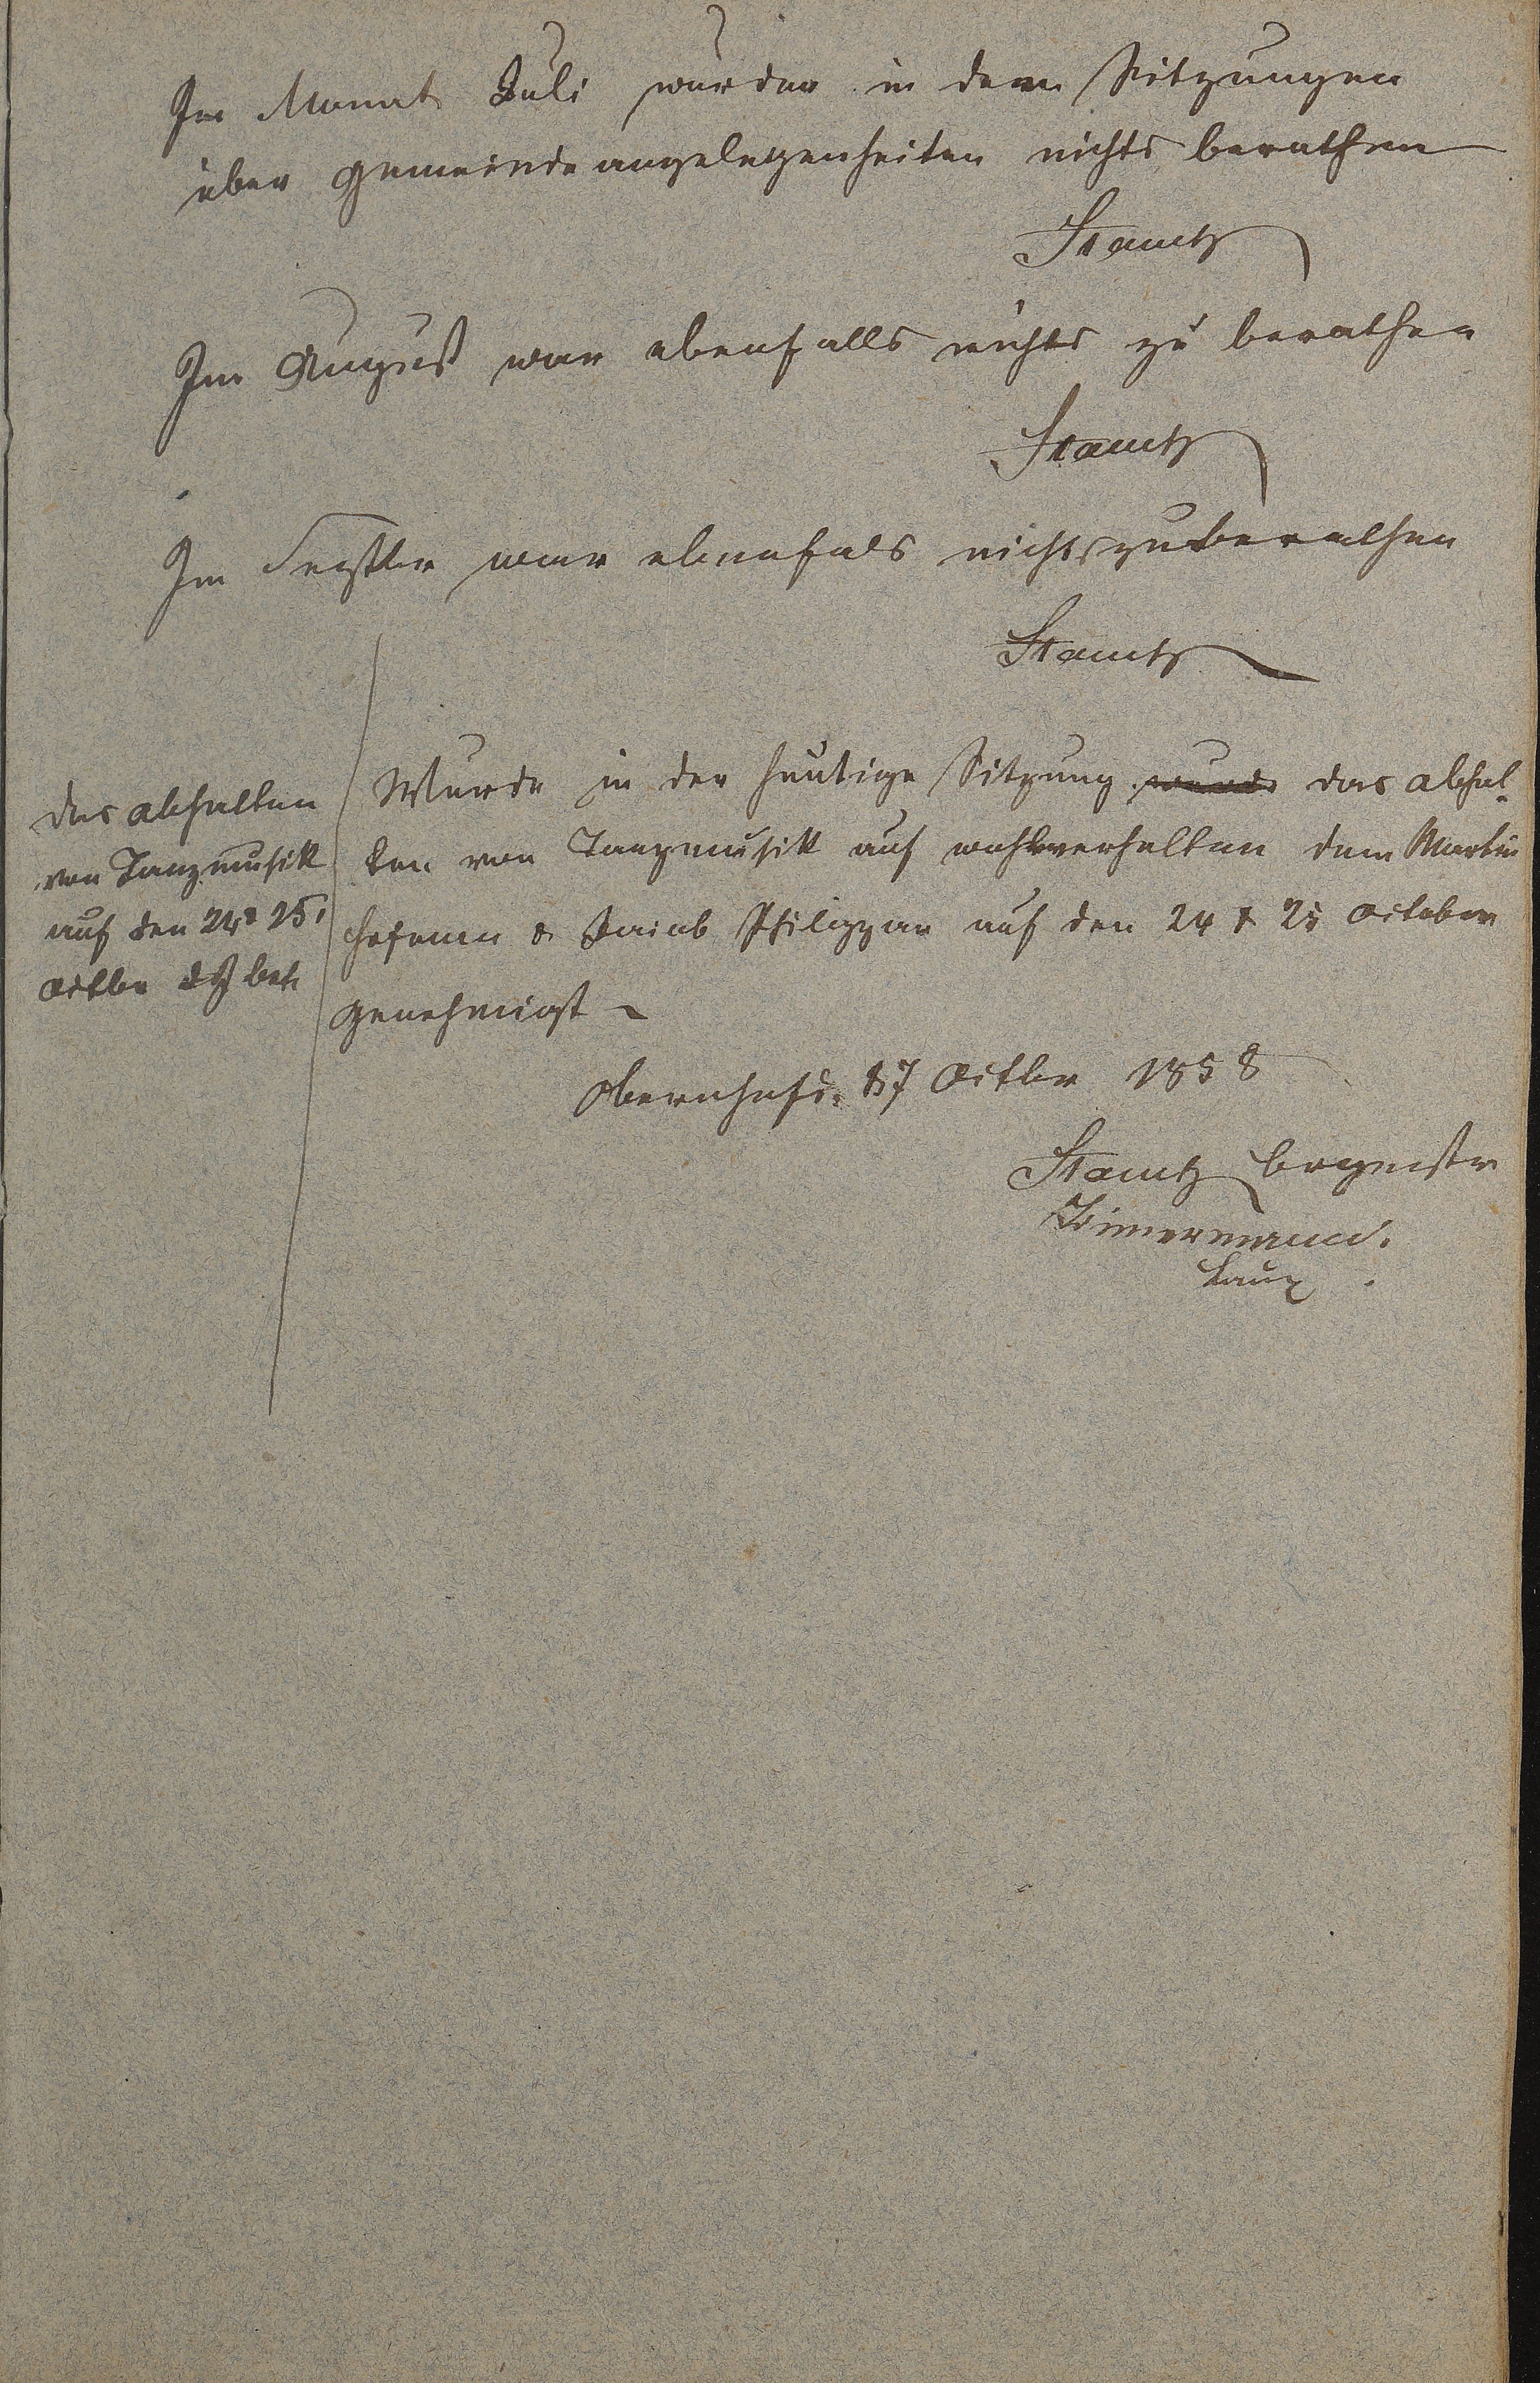 Im Monat Juli wurden in dem Sitzungen
über Gemeindeangelegenheiten nichts berathen
Stamtz
Im August war ebenfalls nichts zu berathen
Stamtz
Im Septbr war ebenfals nichts zu berathen
Stamtz
das abhalten
von Tanzmusik
auf den 24 & 25
Octbr betr
Wurde in der heutige Sitzung wurde das abhal-
ten von Tanzmusik auf wohlverhalten dem Martin
Hofmann & Philippar auf den 24 & 25 October
genehmigt
Obernhofe. 7 Octbr 1858
Stamtz Brgmstr
Zimermann.
Lauz